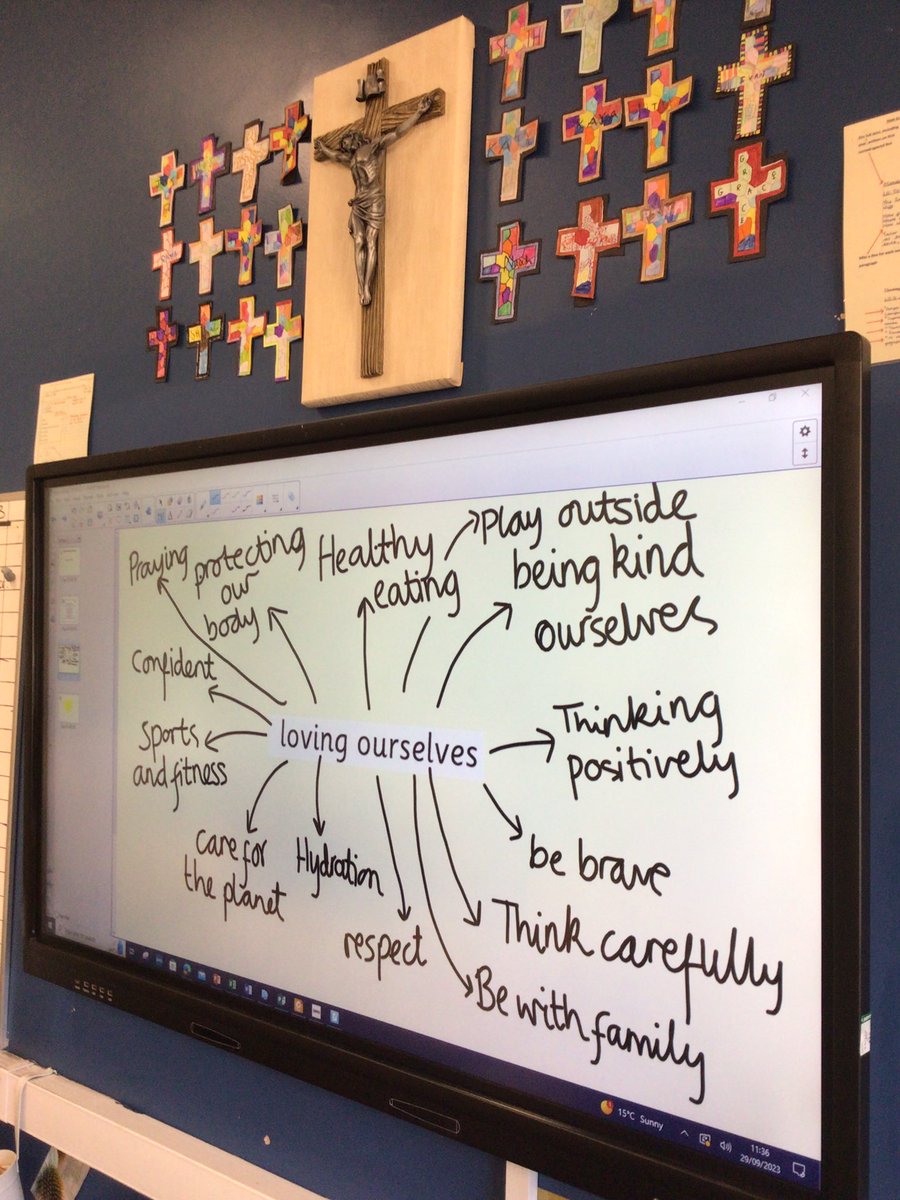 SETH
EVAN
GRACE
GRACE
Praying
protecting
our
body
Healthy
eating
Play outside
being kind
ourselves
Confident
Sports
and fitness
loving ourselves
Thinking
positively
care for
the planet
Hydration
be brave
respect
Think carefully
Be with family
15°C Sunny
11:36
29/09/2023